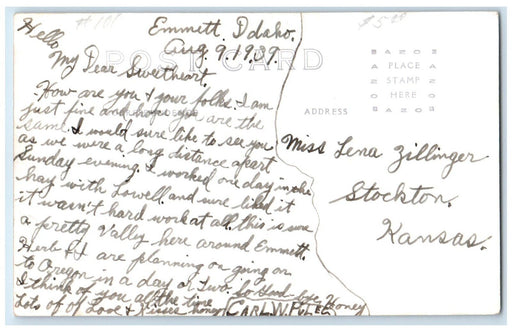 #101
$5.00
Emmett, Idaho.
Aug. 9, 1939.
Hello,
My Dear Sweetheart.
How are you & your folks. I am
just fine and hope you are the
same. I would sure like to see you
as we were a long distance apart
Sunday evening. I worked one day in the
hay with Lowell and sure liked it
it wasn't hard work at all. this is sure
a pretty Valley here around Emmett.
Herb & I are planning on going on
to Oregon in a day or two. so Good-bye Honey
I think of you all the time
Lots of Love & Kisses honey Carl W.
POST CARD
BAZOZ
A PLACE
STAMP
HERE
ADDRESS
Miss Lena Zillinger
Stockton,
Kansas.